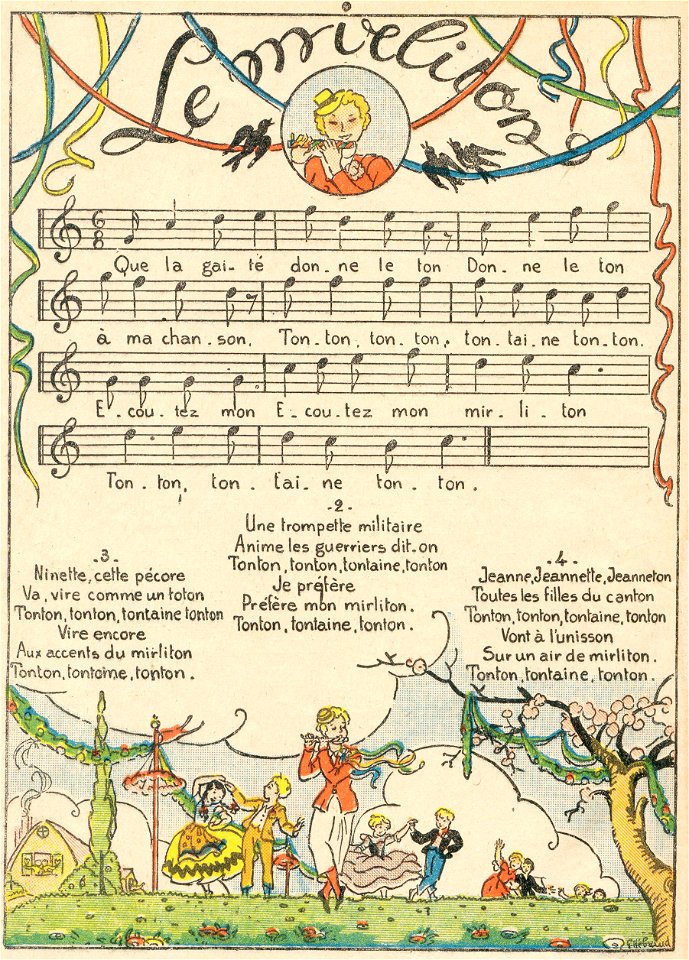 Le mirliton
6
8
Que la gai-té don-ne le ton Don-ne le ton
à ma chan-son. Ton-ton, ton-ton, ton-tai-ne ton-ton.
E-cou-tez mon E-cou-tez mon mir-li-ton
Ton-ton, ton-tai-ne ton-ton.
-2-
Une trompette militaire
Anime les guerriers dit-on
Tonton, tonton, tontaine, tonton
Je préfère
Préfère mon mirliton.
Tonton, tontaine, tonton.
-3-
Ninette, cette pécore
Va, vire comme un toton
Tonton, tonton, tontaine tonton
Vire encore
Aux accents du mirliton
Tonton, tontaine, tonton.
-4-
Jeanne, Jeannette, Jeanneton
Toutes les filles du canton
Tonton, tonton, tontaine, tonton
Vont à l'unisson
Sur un air de mirliton.
Tonton, tontaine, tonton.